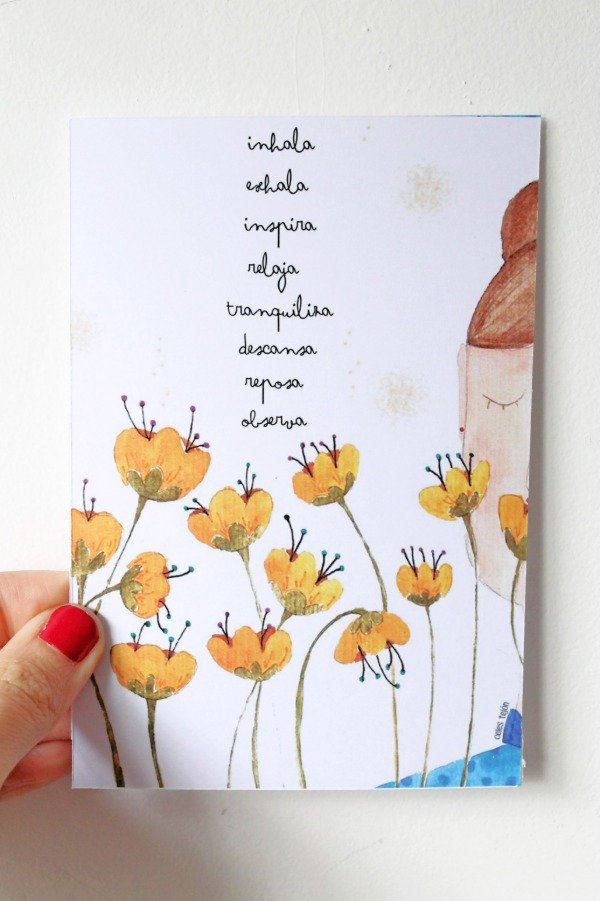 inhala
exhala
inspira
relaja
tranquiliza
descansa
reposa
observa
celes tejón